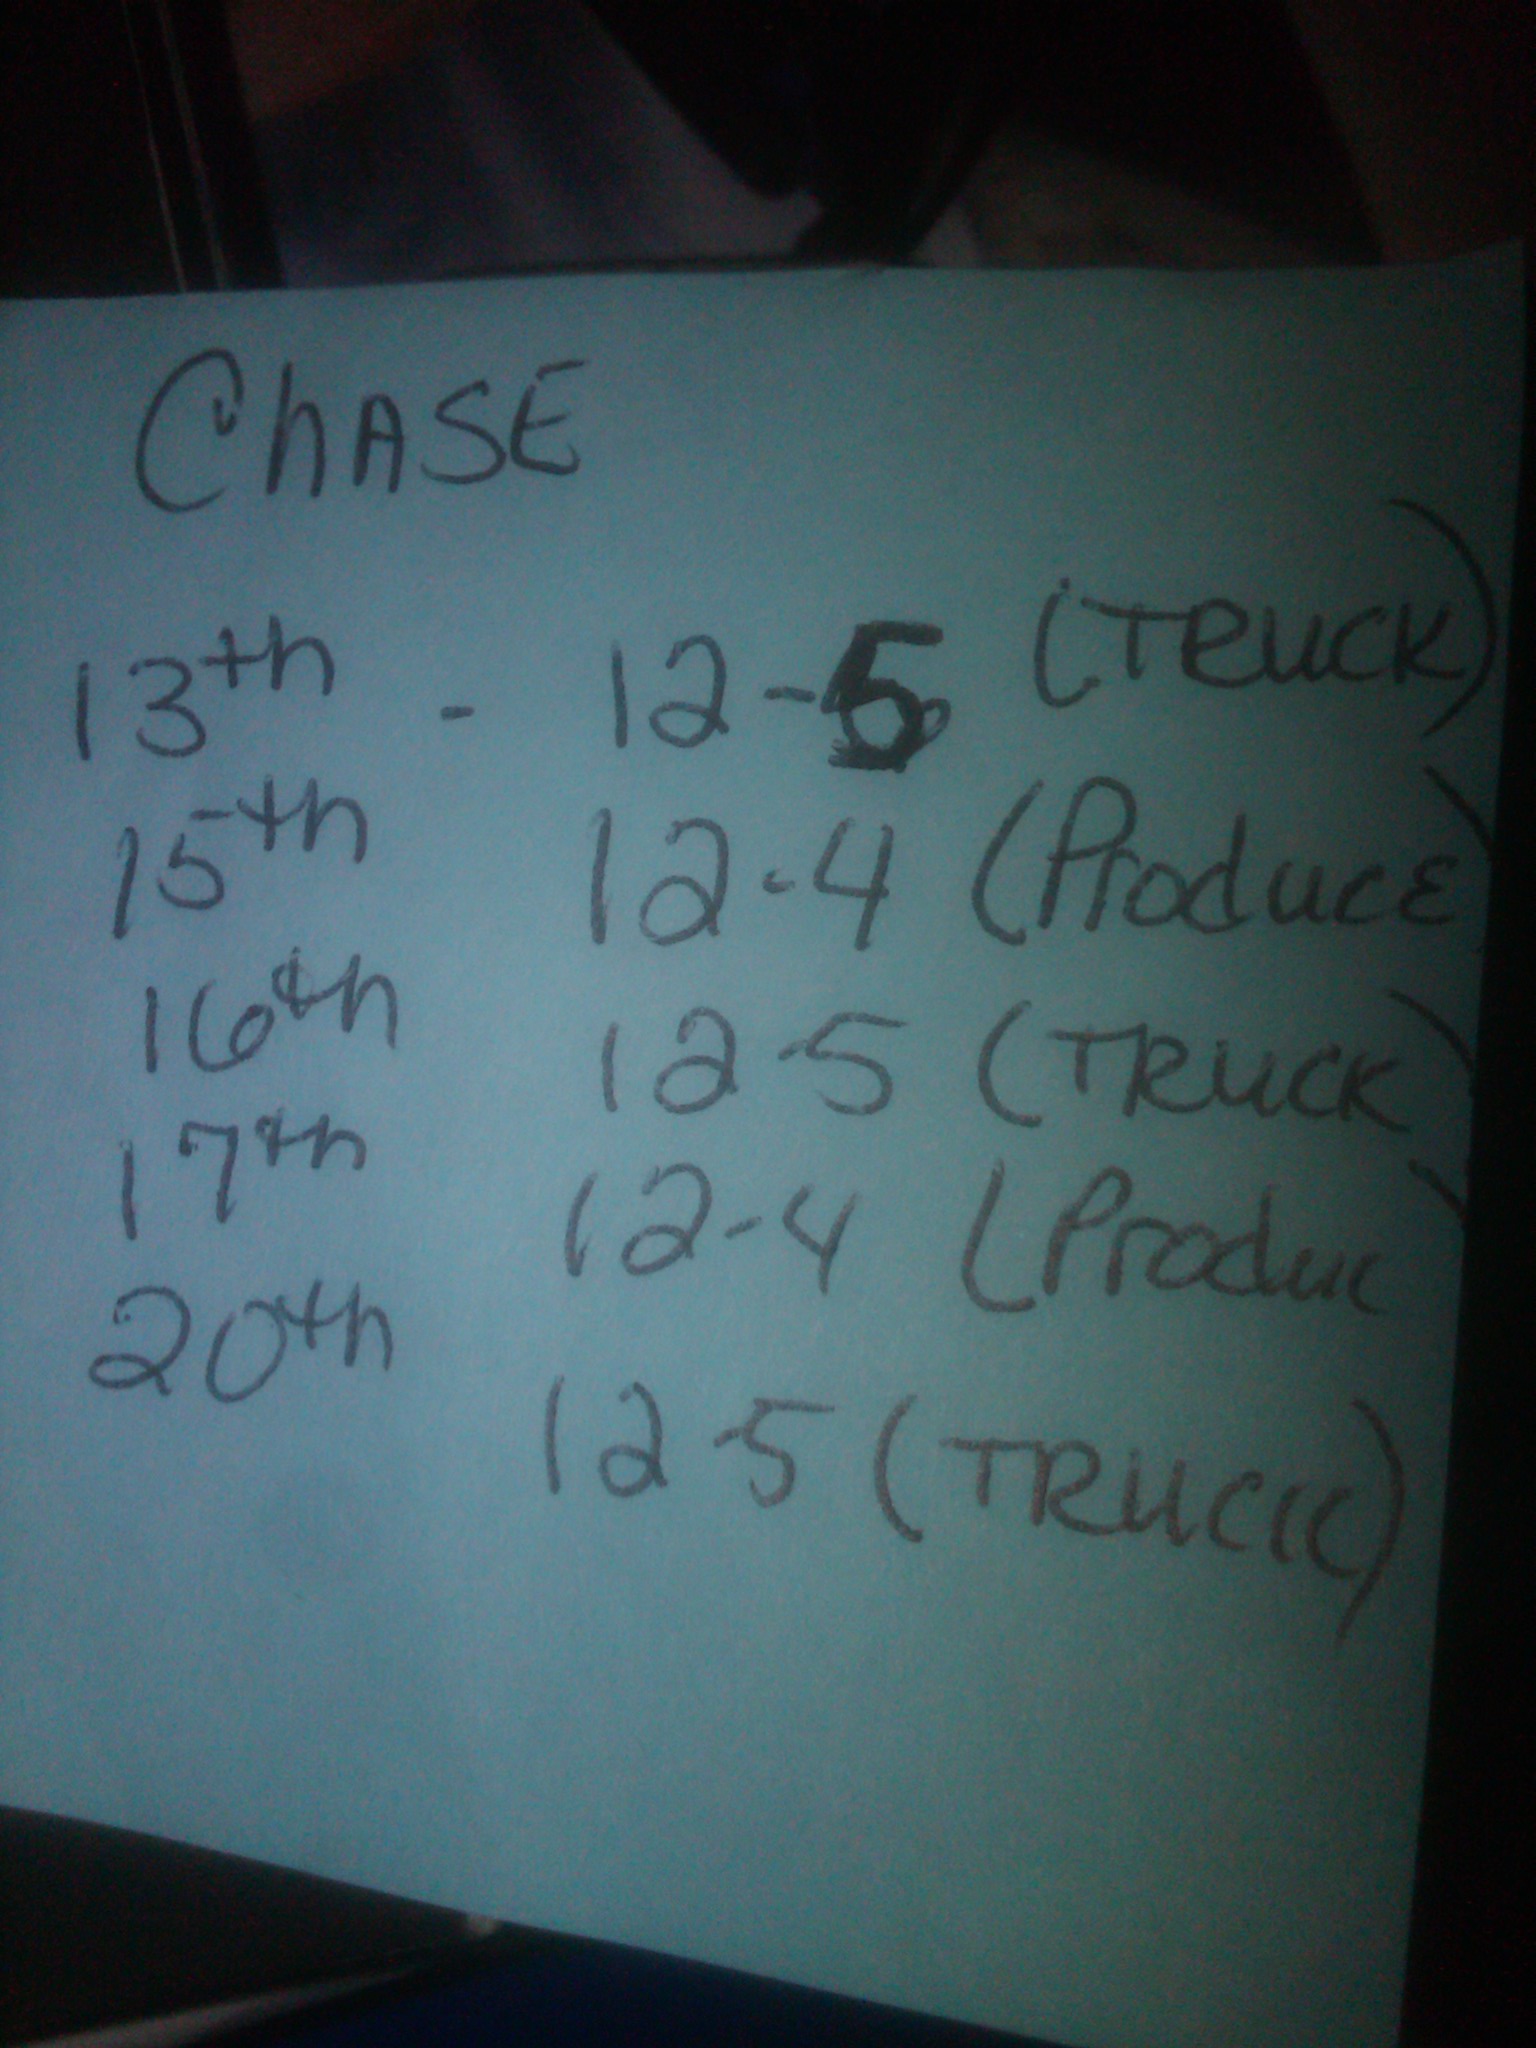 ChASE
13th - 12-5 (TRUCK)
15th 12-4 (Produce)
16th 12-5 (TRUCK)
17th 12-4 (Produc)
20th 12-5 (TRUCK)